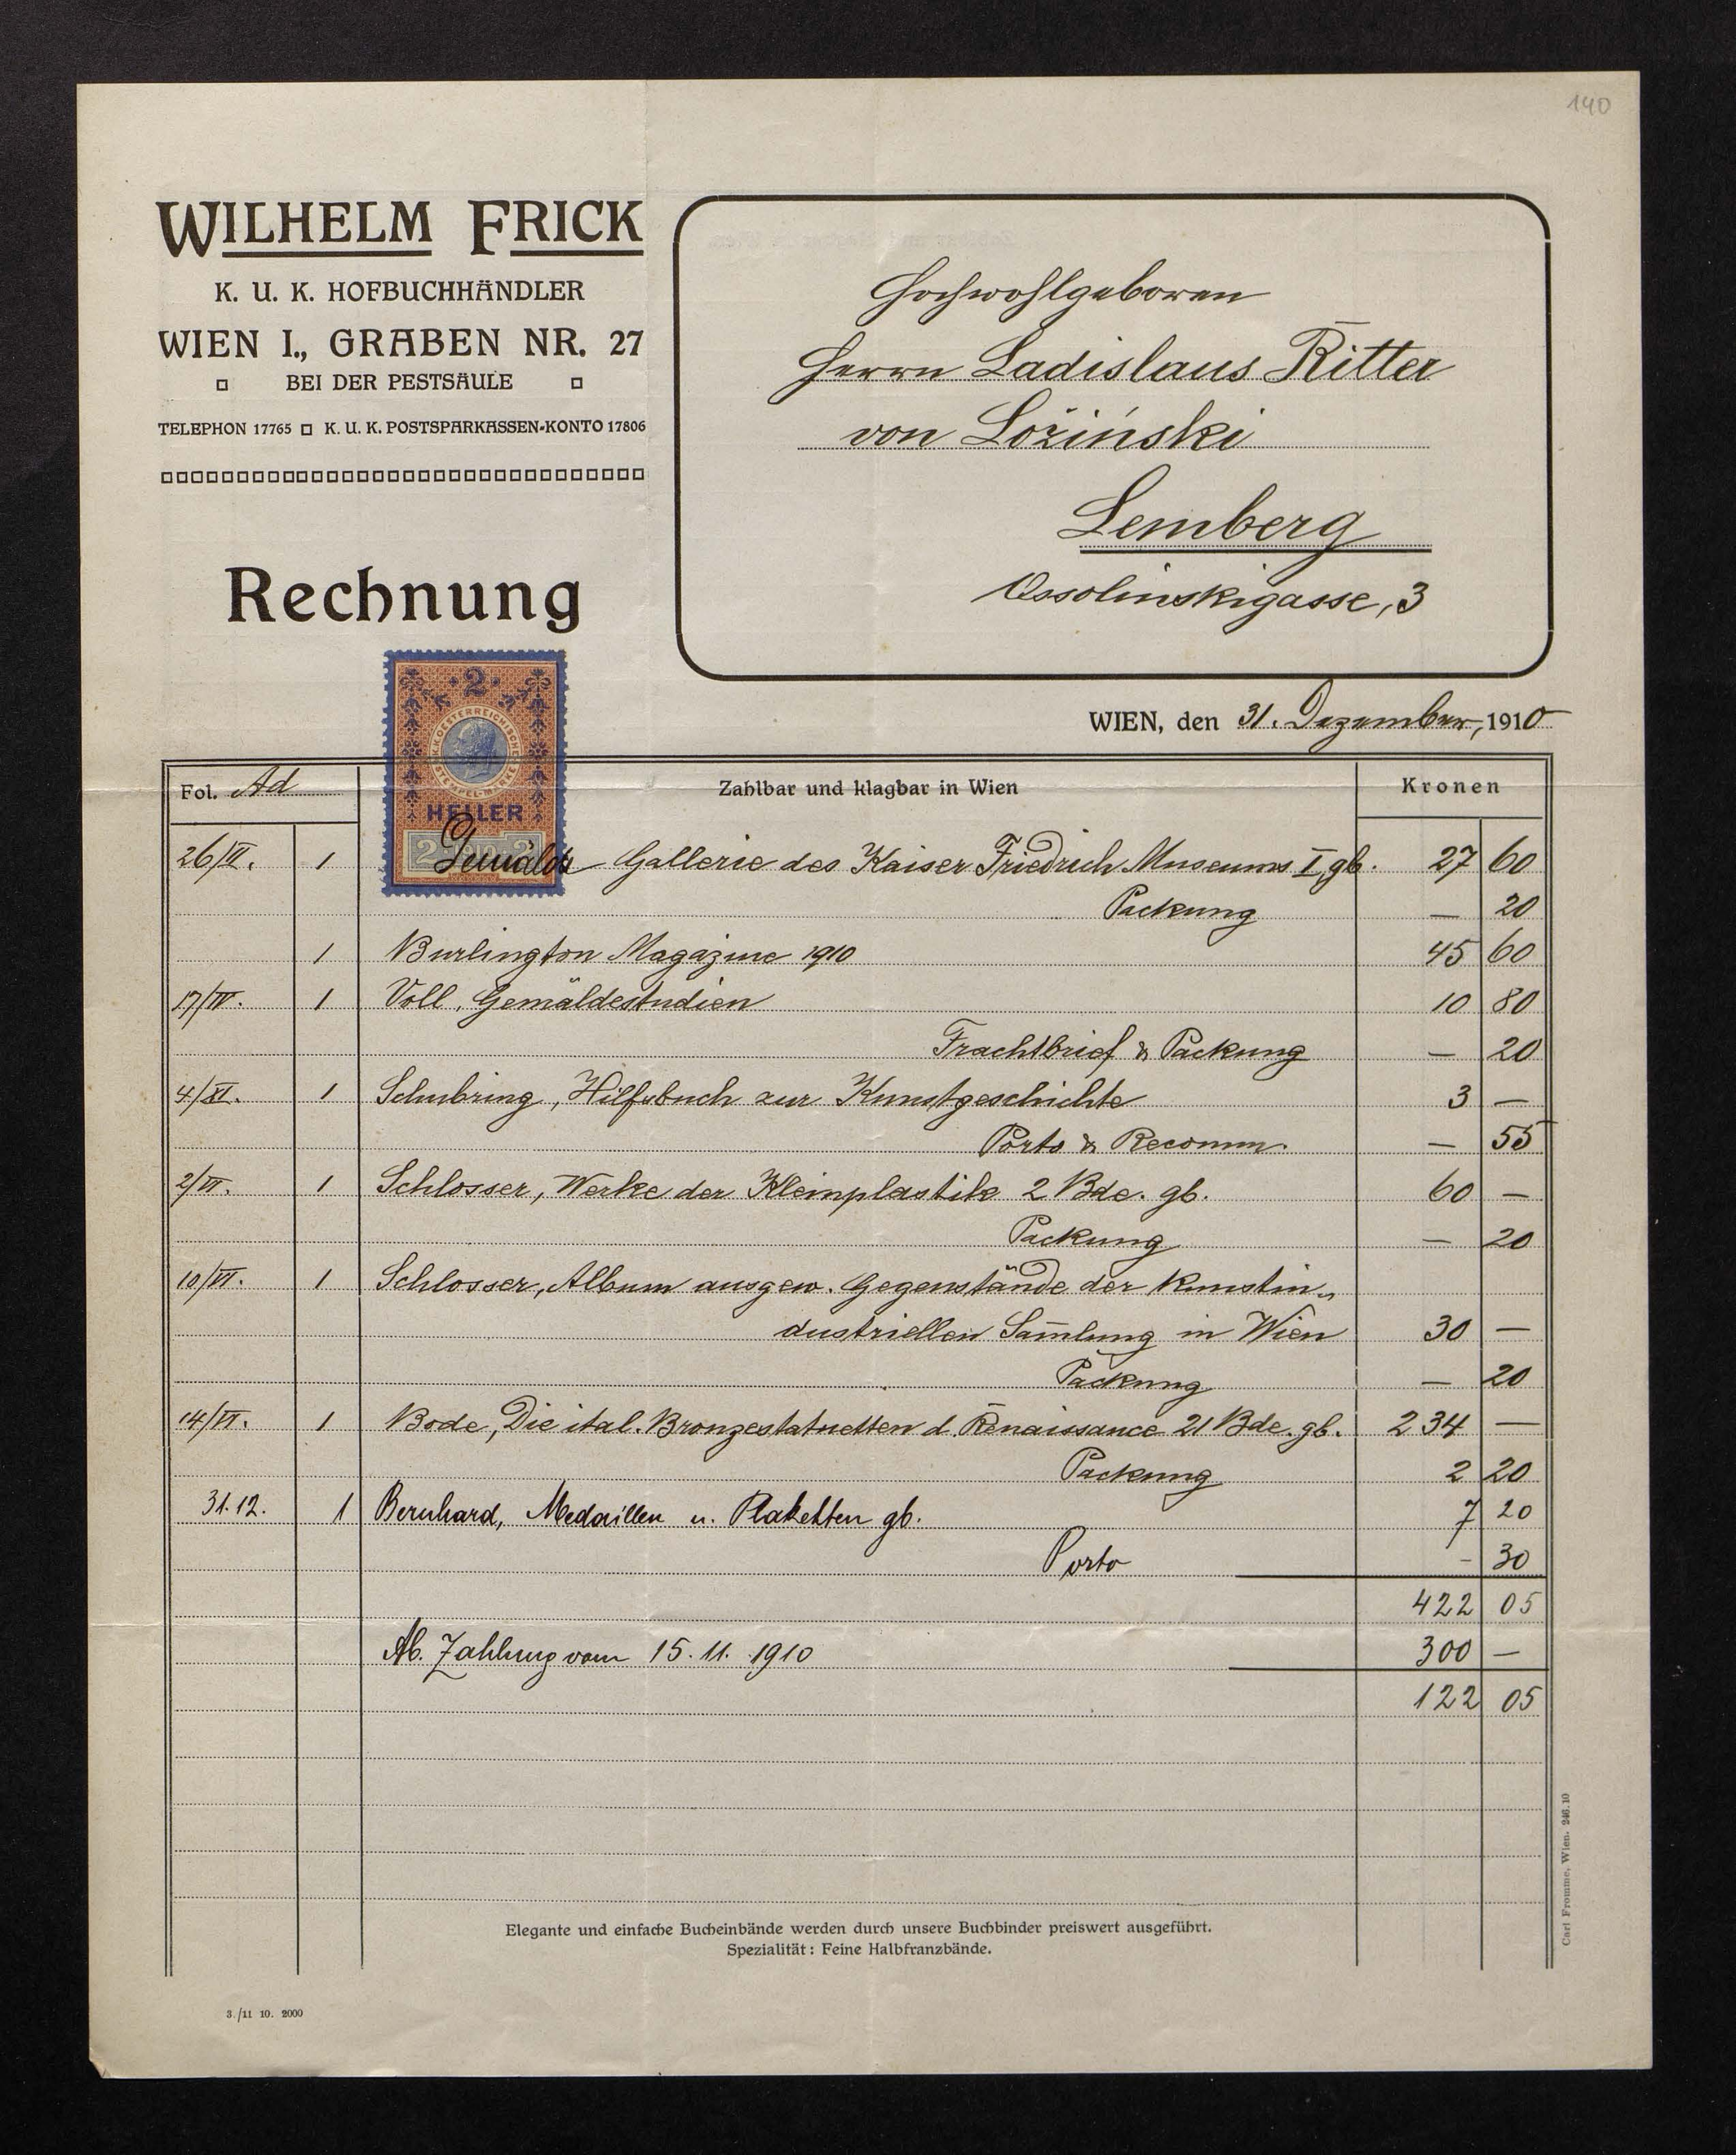 140
WILHELM FRICK
K. U. K. HOFBUCHHÄNDLER
WIEN I., GRABEN NR. 27
BEI DER PESTSÄULE
TELEPHON 17765 K. U. K. POSTSPARKASSEN-KONTO 17806
Rechnung
Hochwohlgeboren
Herrn Ladislaus Ritter
von Łoziński
Lemberg
Ossolinskigasse, 3
WIEN, den 31. Dezember, 1910
2
K.K. OESTERREICHISCHE STEMPEL-MARKE
HELLER
Fol. Ad Zahlbar und klagbar in Wien Kronen
26/II. 1 Gemälde Gallerie des Kaiser Friedrich Museums I, gb. 27 60
Packung — 20
1 Burlington Magazine 1910 45 60
17/IV. 1 Voll, Gemäldestudien 10 80
Frachtbrief & Packung — 20
4/XI. 1 Schubring, Hilfsbuch zur Kunstgeschichte 3 —
Porto & Recomm. — 55
2/VI. 1 Schlosser, Werke der Kleinplastik 2 Bde. gb. 60 —
Packung — 20
10/VI. 1 Schlosser, Album ausgew. Gegenstände der kunstin-
dustriellen Sam̄lung in Wien 30 —
Packung — 20
14/VI. 1 Bode, Die ital. Bronzestatuetten d. Renaissance 21 Bde. gb. 234 —
Packung 2 20
31.12. 1 Bernhard, Medaillen u. Plaketten gb. 7 20
Porto - 30
422 05
Ab. Zahlung vom 15. 11. 1910 300 —
122 05
Elegante und einfache Bucheinbände werden durch unsere Buchbinder preiswert ausgeführt.
Spezialität: Feine Halbfranzbände.
3./11 10. 2000
Carl Fromme, Wien. 246.10